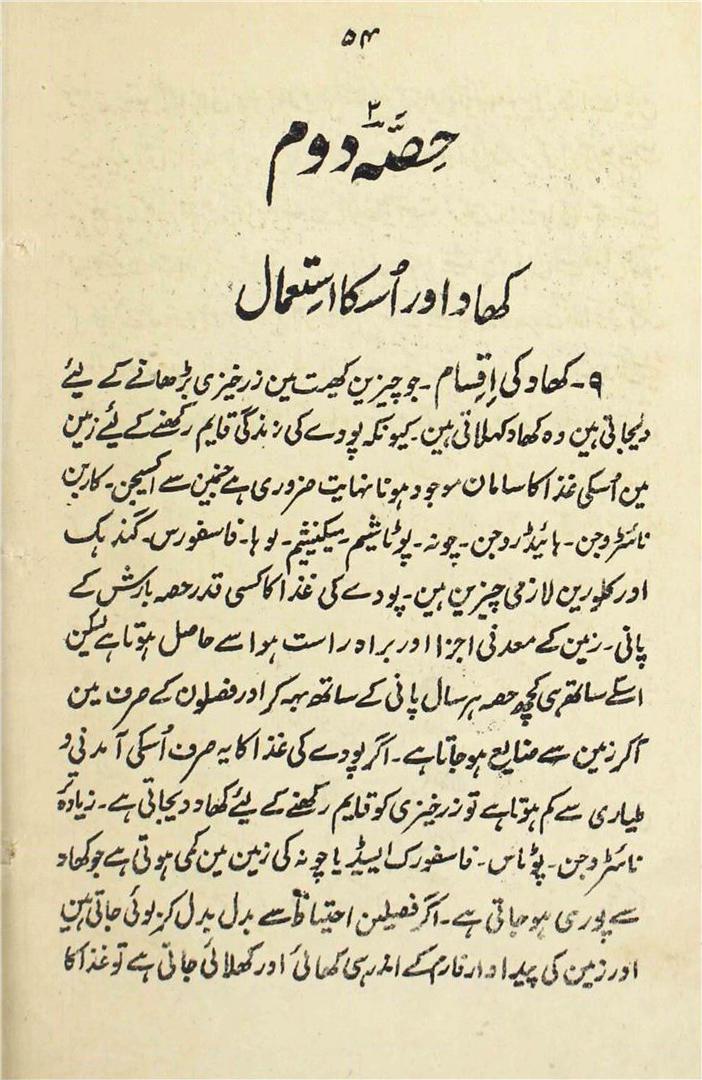 ۵۴
حِصّہ دوم ۲
کھاد اور اُسکا استِعمال
۹- کھاد کی اِقسام - جو چیزین کھیت مین زرخیزی بڑھانے کے لیئے
دیجاتی ہین وہ کھاد کہلاتی ہین - کیونکہ پودے کی زندگی قایم رکھنے کے لیئے زمین
مین اُسکی غذا کا سامان موجود ہونا نہایت ضروری ہے جنمین سے اکسیجن - کاربن
نائٹروجن - ہائیڈروجن - چونہ - پوٹاشیم - میکنیشیم - لوہا - فاسفورس - گندہک
اور کلورین لازمی چیزین ہین - پودے کی غذا کا کسی قدر حصہ بارش کے
پانی - زمین کے معدنی اجزا اور براہ راست ہوا سے حاصل ہوتا ہے لیکن
اسکے ساتھ ہی کچھ حصہ ہر سال پانی کے ساتھ بہہ کر اور فصلون کے صرف مین
آکر زمین سے ضایع ہو جاتا ہے - اگر پودے کی غذا کا یہ صرف اُسکی آمدنی و
طیاری سے کم ہوتا ہے تو زرخیزی کو قایم رکھنے کے لیئے کھاد دیجاتی ہے - زیادہ تر
نائٹروجن - پوٹاس - فاسفورک ایسیڈ یا چونہ کی زمین مین کمی ہوتی ہے جو کھاد
سے پوری ہو جاتی ہے - اگر فصیلین احتیاط سے بدل بدل کر بوئی جاتی ہین
اور زمین کی پیداوار فارم کے اندر ہی کھائی اور کھلائی جاتی ہے تو غذا کا